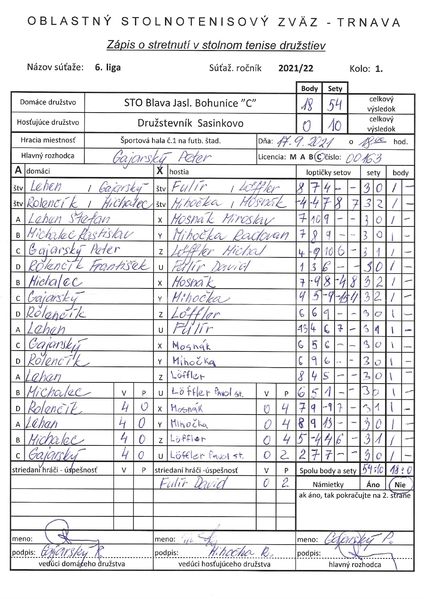 OBLASTNÝ STOLNOTENISOVÝ ZVÄZ - TRNAVA
Zápis o stretnutí v stolnom tenise družstiev
Názov súťaže: 6. liga Súťaž. ročník 2021/22 Kolo: 1.
Body Sety
Domáce družstvo STO Blava Jasl. Bohunice "C" 18 54 celkový výsledok
Hosťujúce družstvo Družstevník Sasinkovo 0 10 celkový výsledok
Hracia miestnosť Športová hala č.1 na futb. štad. Dňa: 17.9.2021 o hod.
Hlavný rozhodca Gajarský Peter Licencia: M A B C Číslo: 00163
A domáci X hostia loptičky setov sety body
štv Lehen, Gajarský štv Fulír, Löffler 8 7 4 - - 3 0 1 -
štv Rolenčík, Michalec štv Mihočka, Mosnák -4 -4 7 8 7 3 2 1 -
A Lehen Štefan X Mosnák Miroslav 7 10 9 - - 3 0 1 -
B Michalec Rastislav Y Mihočka Radovan 7 8 9 - - 3 0 1 -
C Gajarský Peter Z Löffler Michal 4 -9 10 6 - 3 1 1 -
D Rolenčík František U Fulír David 1 3 6 - - 3 0 1 -
B Michalec X Mosnák 7 -9 8 -4 8 3 2 1 -
C Gajarský Y Mihočka 3 2 1 -
D Rolenčík Z Löffler 6 6 9 - - 3 0 1 -
A Lehen U Fulír 3 1 1 -
C Gajarský X Mosnák 6 5 6 - - 3 0 1 -
D Rolenčík Y Mihočka 6 9 6 - - 3 0 1 -
A Lehen Z Löffler 8 4 5 - - 3 0 1 -
B Michalec V P U Löffler Pavol st. V P 6 5 1 - - 3 0 1 -
D Rolenčík 4 0 X Mosnák 0 4 3 1 1 -
A Lehen 4 0 Y Mihočka 0 4 8 9 13 - - 3 0 1 -
B Michalec 4 0 Z Löffler 0 4 5 -4 4 6 - 3 1 1 -
C Gajarský 4 0 U Löffler Pavol st. 0 2 2 7 7 - - 3 0 1 -
striedaní hráči -úspešnosť V P striedaní hráči -úspešnosť V P Spolu body a sety 54:10 18:0
Fulír David 0 2 Námietky Áno Nie
ak áno, tak pokračujte na 2. strane
meno: meno: meno: Gajarský P.
podpis: Gajarský P. podpis: Mihočka R. podpis:
vedúci domáceho družstva vedúci hosťujúceho družstva hlavný rozhodca